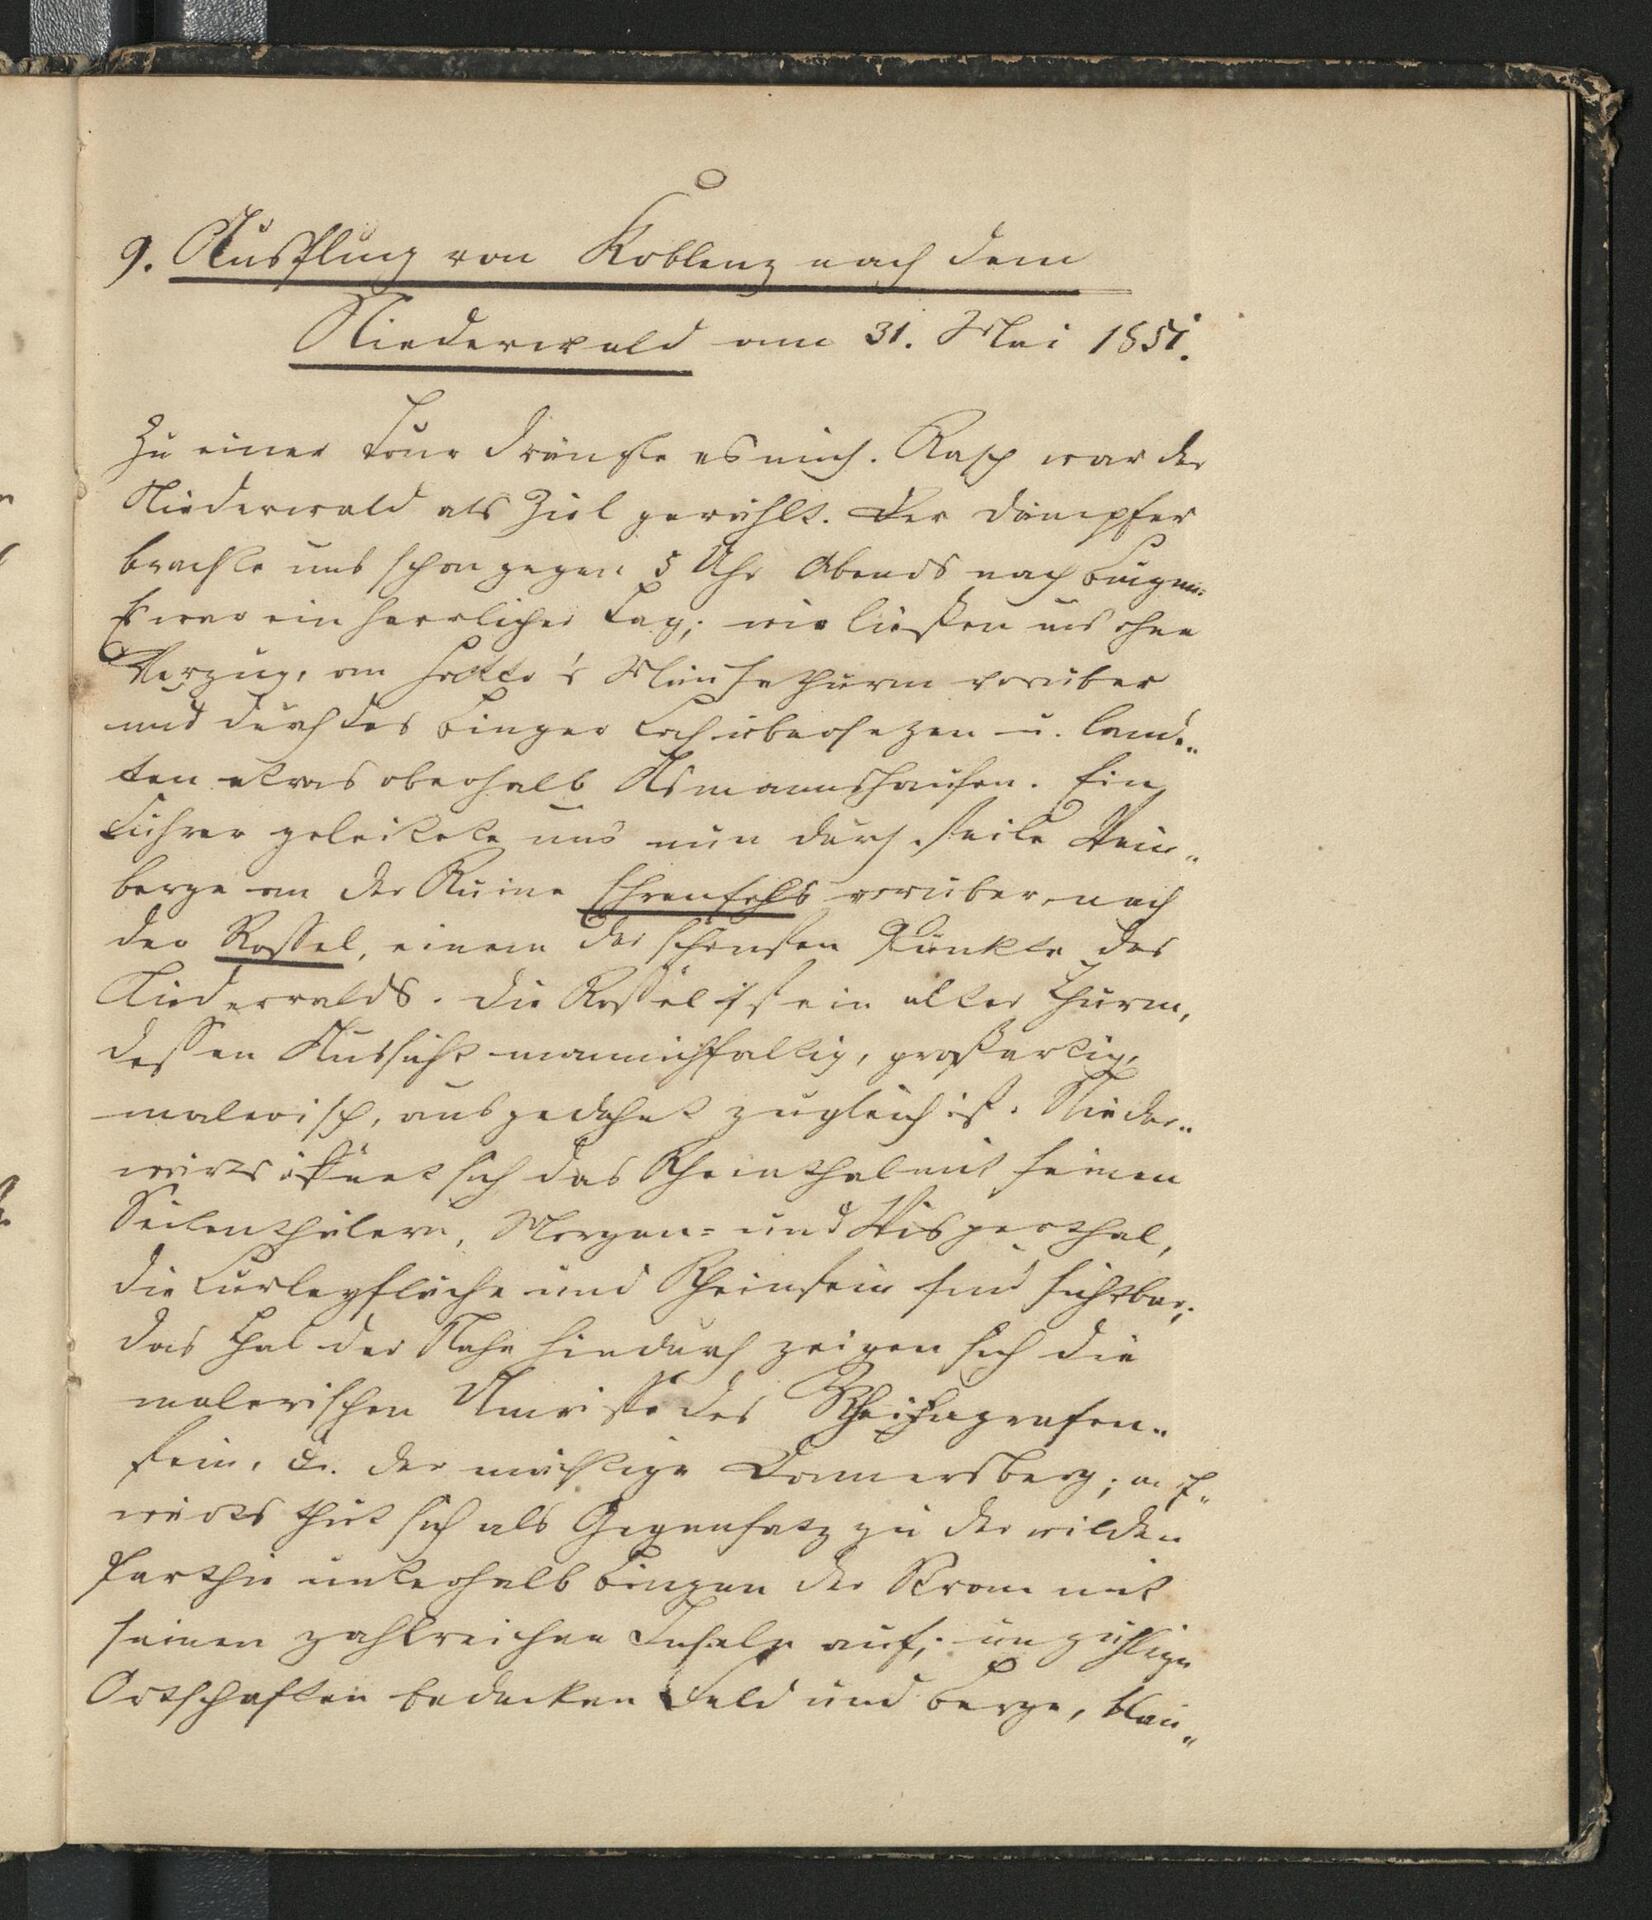 9. Ausflug von Koblenz nach dem
Niederwald am 31. Mai 1851.
Zu einer Tour drängte es mich. Rasch war der
Niederwald als Ziel gewählt. Der Dampfer
brachte uns schon gegen 5 Uhr Abends nach Bingen.
Es war ein herrlicher Tag; wir ließen uns ohne
Verzug, an Hatto's Mäusethurm vorüber
und durch das Binger Loch übersezen u. lande„
ten etwas oberhalb Asmannshausen. Ein
Führer geleitete uns nun durch steile Wein„
berge an der Ruine Ehrenfels vorüber, nach
der Rossel, einem der schönsten Punkte des
Niederwalds. Die Rossel ist ein alter Thurm,
dessen Aussicht mannichfaltig, großartig,
malerisch, ausgedehnt zugleich ist. Nieder„
wärts öffnet sich das Rheinthal mit seinen
Seitenthälern, Morgen= und Wisperthal,
die Lurleyfläche und Rheinstein sind sichtbar;
das Thal der Nahe hindurch zeigen sich die
malerischen Umrisse des Rheingrafen„
stein, u. der mächtige Donnersberg; auf„
wärts thut sich als Gegensatz zu der wilden
Parthie unterhalb Bingen der Strom mit
seinen zahlreichen Inseln auf; unzählige
Ortschaften bedecken Feld und Berge, blau„